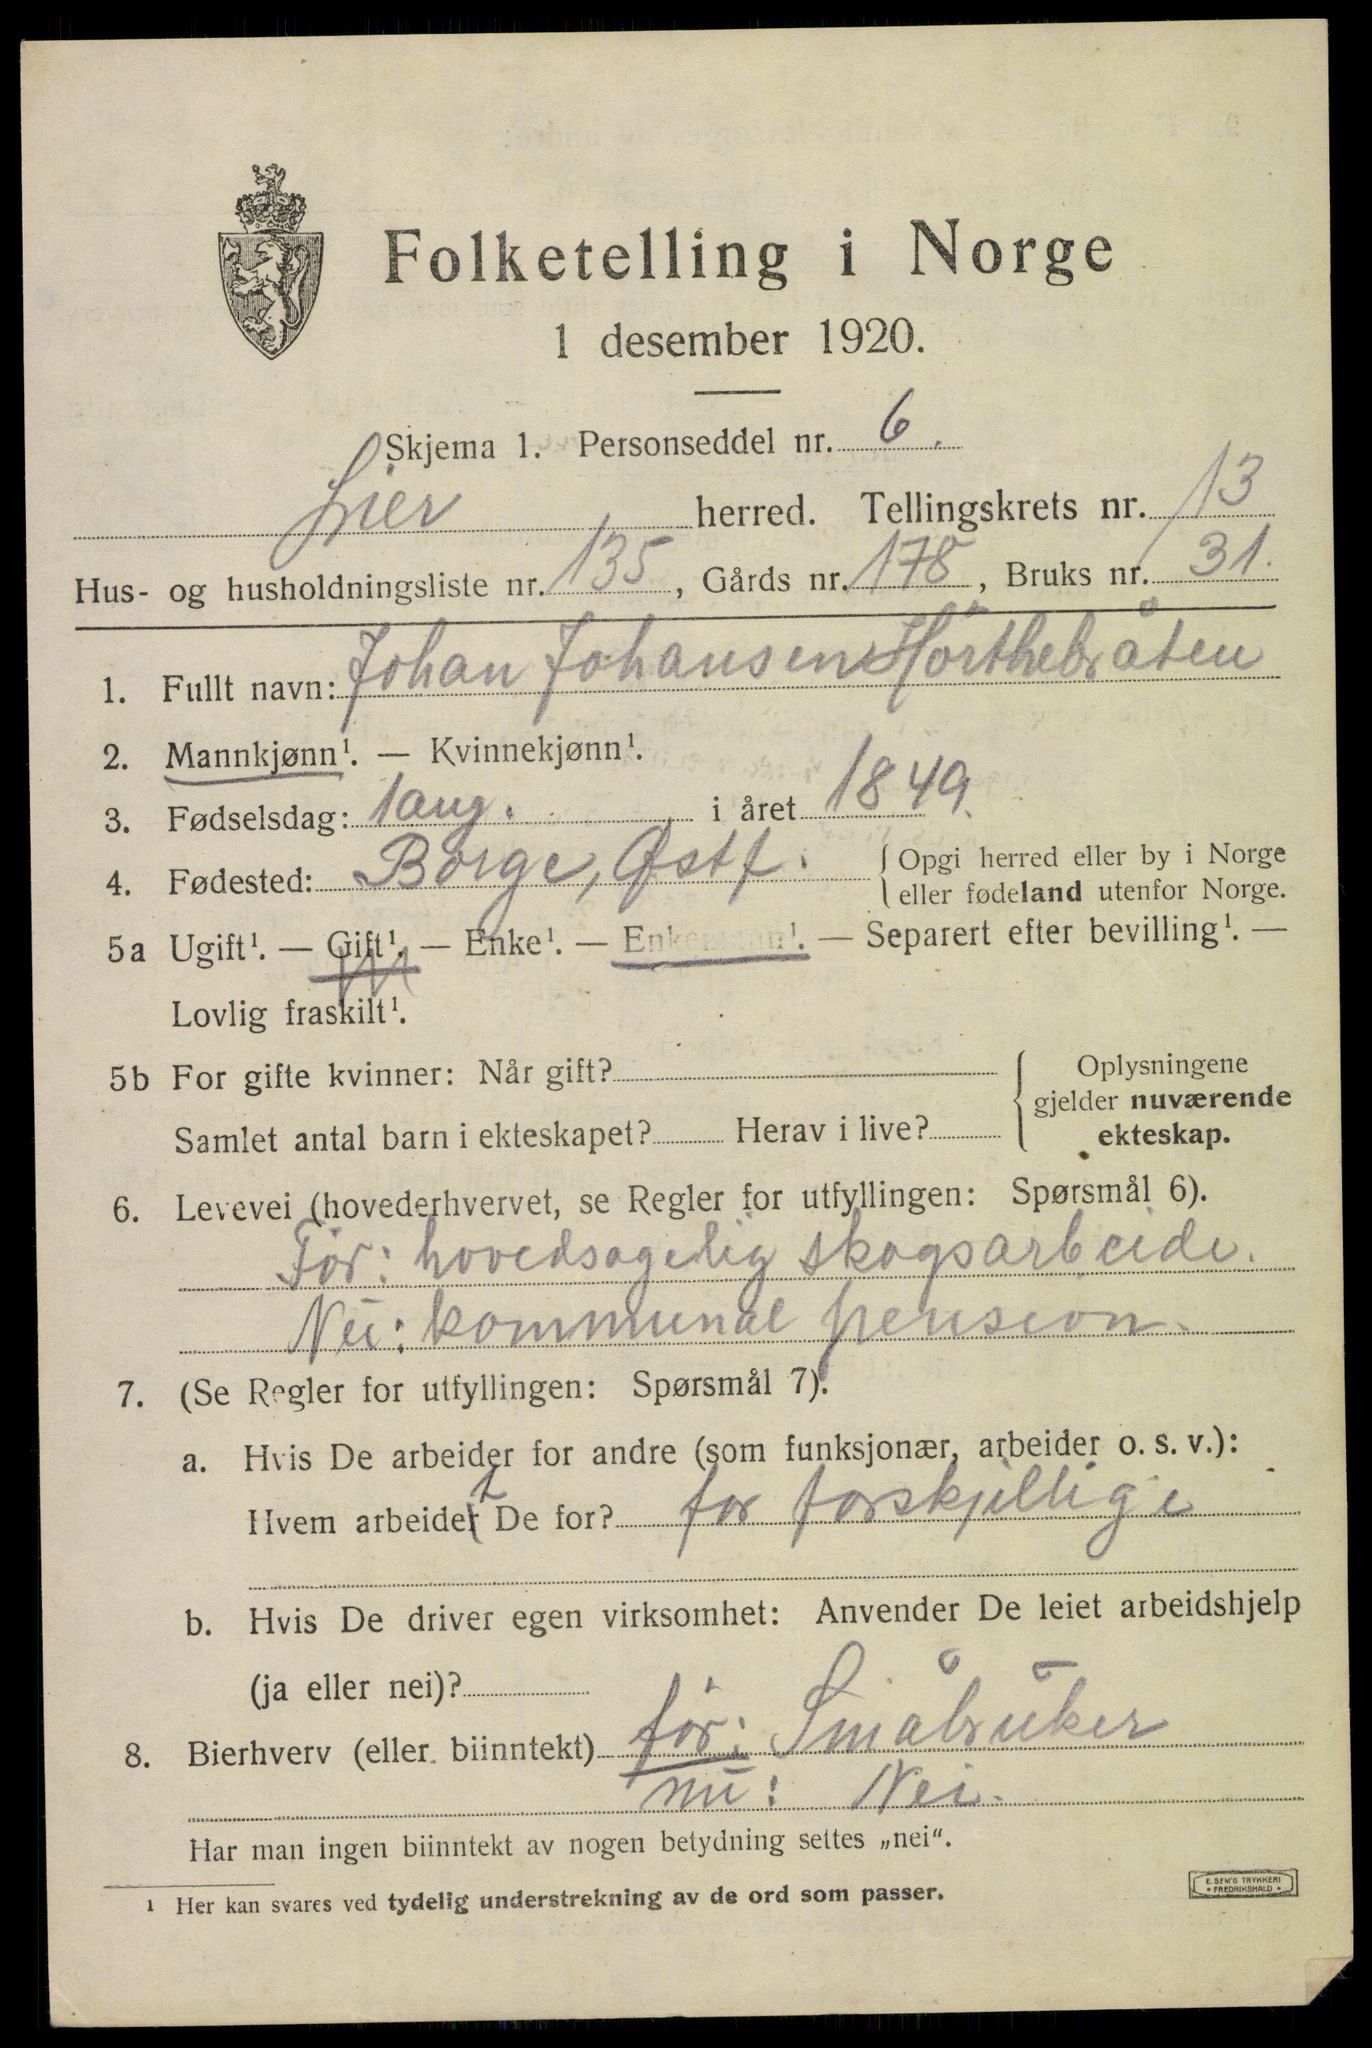 Folketelling i Norge
1 desember 1920.
Skjema 1. Personseddel nr. 6.
Lier herred. Tellingskrets nr. 13
Hus- og husholdningsliste nr. 135, Gårds nr. 178, Bruks nr. 31.
1. Fullt navn: Johan Johansen Hörthebråten
2. Mannkjønn¹. — Kvinnekjønn¹.
3. Fødselsdag: 1 aug. i året 1849.
4. Fødested: Borge, Østf. { Opgi herred eller by i Norge
eller fødeland utenfor Norge.
5a Ugift¹. — Gift¹. — Enke¹. — Enkemann¹. — Separert efter bevilling¹. —
Lovlig fraskilt¹.
5b For gifte kvinner: Når gift? { Oplysningene
gjelder nuværende
Samlet antal barn i ekteskapet? Herav i live? ekteskap.
6. Levevei (hovederhvervet, se Regler for utfyllingen: Spørsmål 6).
Før: hovedsagelig skogsarbeide.
Nu: kommunal pension.
7. (Se Regler for utfyllingen: Spørsmål 7).
a. Hvis De arbeider for andre (som funksjonær, arbeider o. s. v.):
Hvem arbeidet De for? for forskjellige
b. Hvis De driver egen virksomhet: Anvender De leiet arbeidshjelp
(ja eller nei)?
8. Bierhverv (eller biinntekt) før: Småbruker
nu: Nei.
Har man ingen biinntekt av nogen betydning settes „nei“.
¹ Her kan svares ved tydelig understrekning av de ord som passer.
E. SEM'S TRYKKERI
FREDRIKSHALD